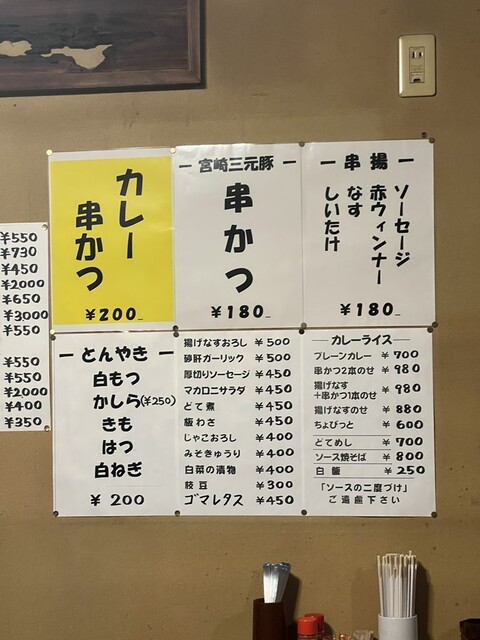 ¥550
¥730
¥450
¥2000
¥650
¥3000
¥550
¥550
¥550
¥2000
¥400
¥350
カレー
串かつ
¥200_
ー 宮崎三元豚 ー
串かつ
¥180_
ー 串揚 ー
ソーセージ
赤ウィンナー
なす
しいたけ
¥180_
ー とんやき ー
白もつ
かしら(¥250)
きも
はつ
白ねぎ
¥200
揚げなすおろし ¥500
砂肝ガーリック ¥500
厚切りソーセージ ¥450
マカロニサラダ ¥450
どて煮 ¥450
板わさ ¥450
じゃこおろし ¥400
みそきゅうり ¥400
白菜の漬物 ¥400
枝豆 ¥300
ゴマレタス ¥450
カレーライス
プレーンカレー ¥700
串かつ2本のせ ¥980
揚げなす
+串かつ1本のせ ¥980
揚げなすのせ ¥880
ちょびっと ¥600
どてめし ¥700
ソース焼そば ¥800
白飯 ¥250
「ソースの二度づけ」
ご遠慮下さい